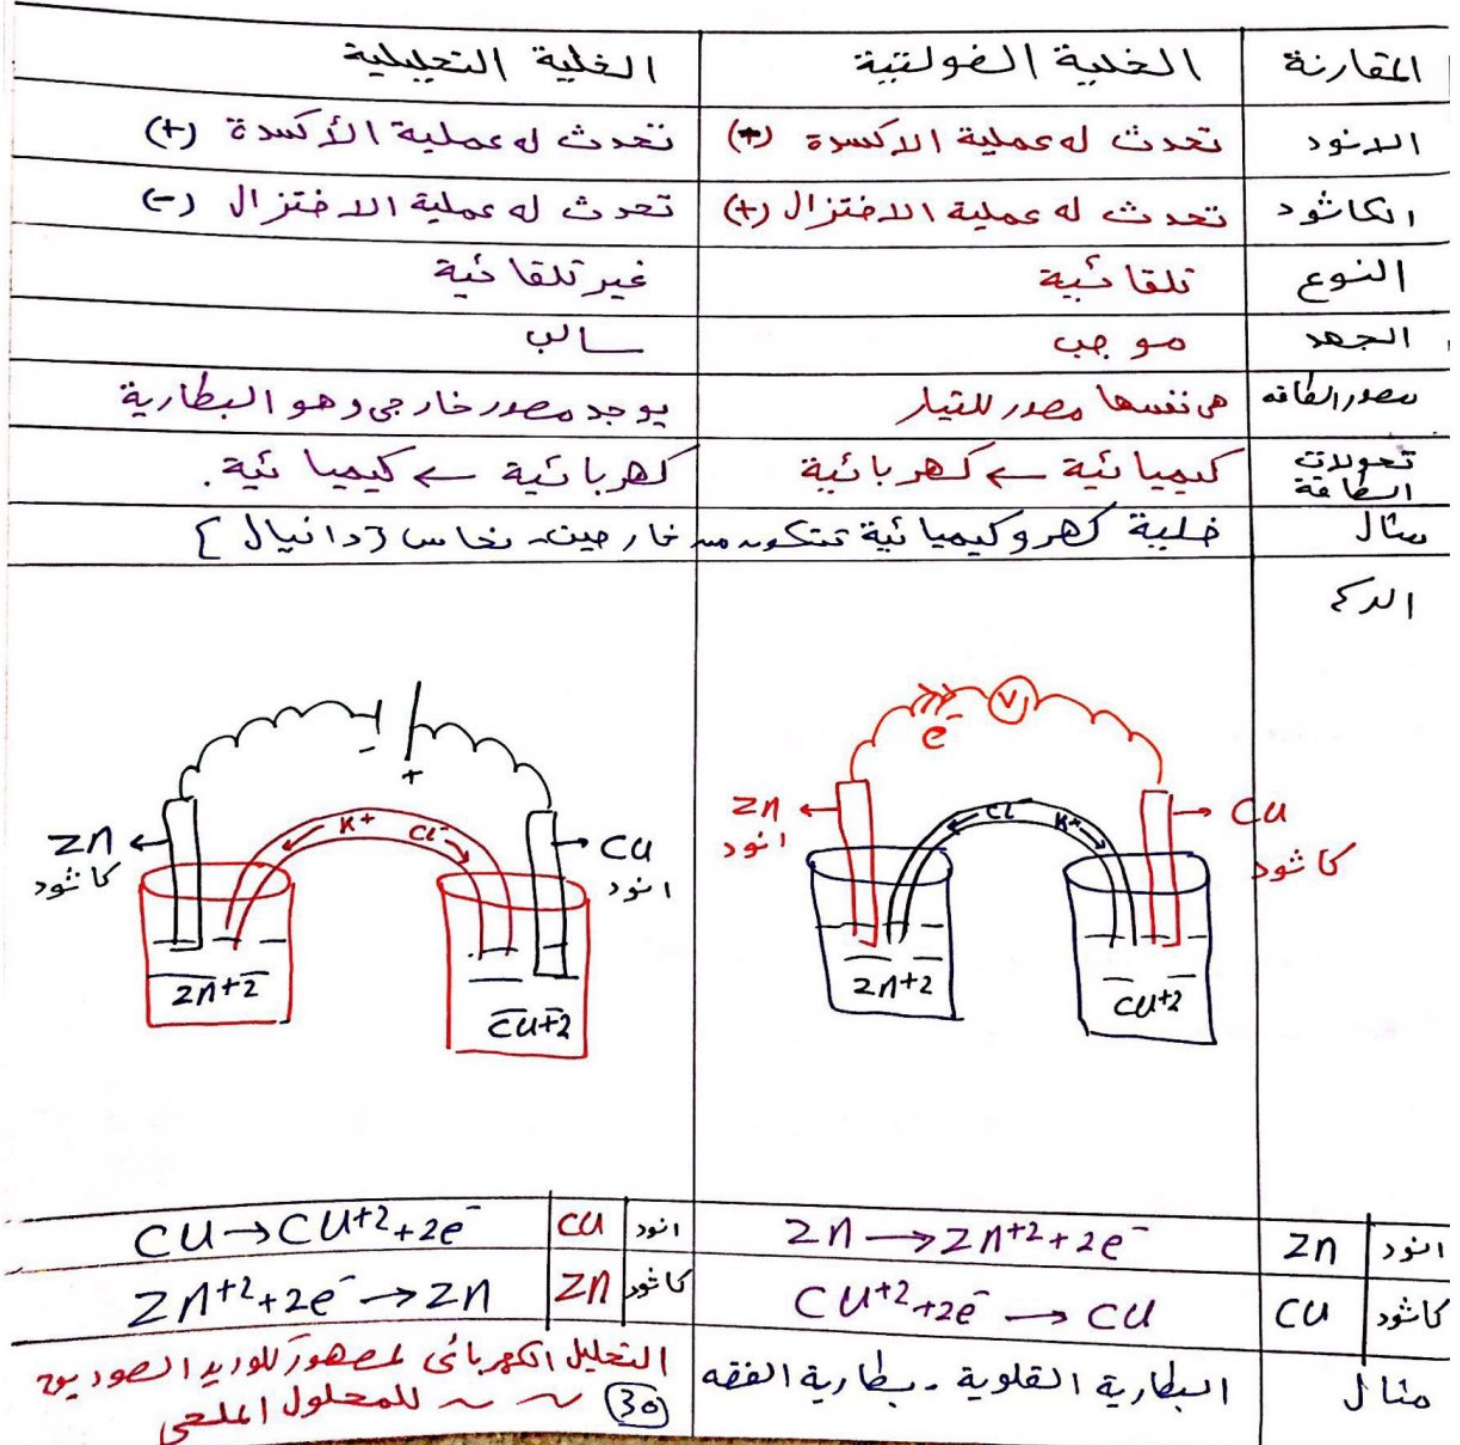 المقارنة | الخلية الفولتية | الخلية التحليلية
الانود | تحدث له عملية الاكسدة (-) | تحدث له عملية الأكسدة (+)
الكاثود | تحدث له عملية الاختزال (+) | تحدث له عملية الاختزال (-)
النوع | تلقائية | غير تلقائية
الجهد | موجب | سالب
مصدر الطاقه | هى نفسها مصدر للتيار | يوجد مصدر خارجى وهو البطارية
تحولات الطاقة | كيميائية ← كهربائية | كهربائية ← كيميائية.
مثال | خلية كهروكيميائية تتكون من خارصين - نحاس {دانيال}
V
e-
Zn
انود
Cl-
K+
Cu
كاثود
Zn+2
Cu+2
-
+
Zn
كاثود
K+
Cl-
Cu
انود
Zn+2
Cu+2
انود | Zn | Zn → Zn+2 + 2e- | انود | Cu | Cu → Cu+2 + 2e-
كاثود | Cu | Cu+2 + 2e- → Cu | كاثود | Zn | Zn+2 + 2e- → Zn
مثال | البطارية القلوية - بطارية الفضه | التحليل الكهربائى لمصهور كلوريد الصوديوم
~ ~ للمحلول الملحى
30